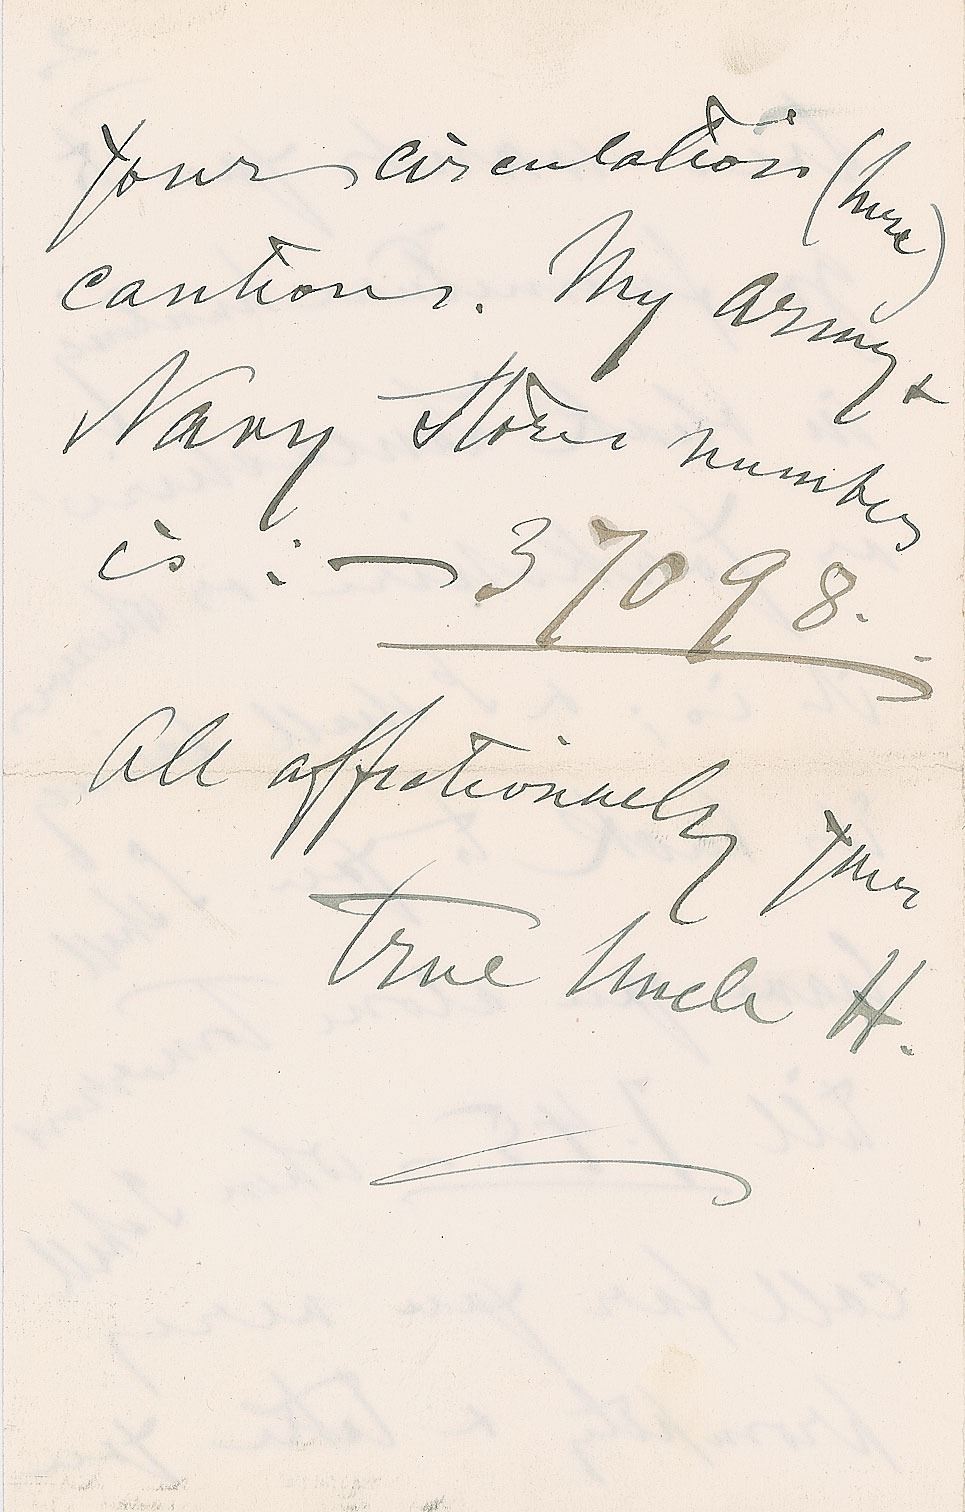 your circulation (here)
cautious. My Army &
Navy Stores number
is :— 37098.
All affectionately your
true Uncle H.